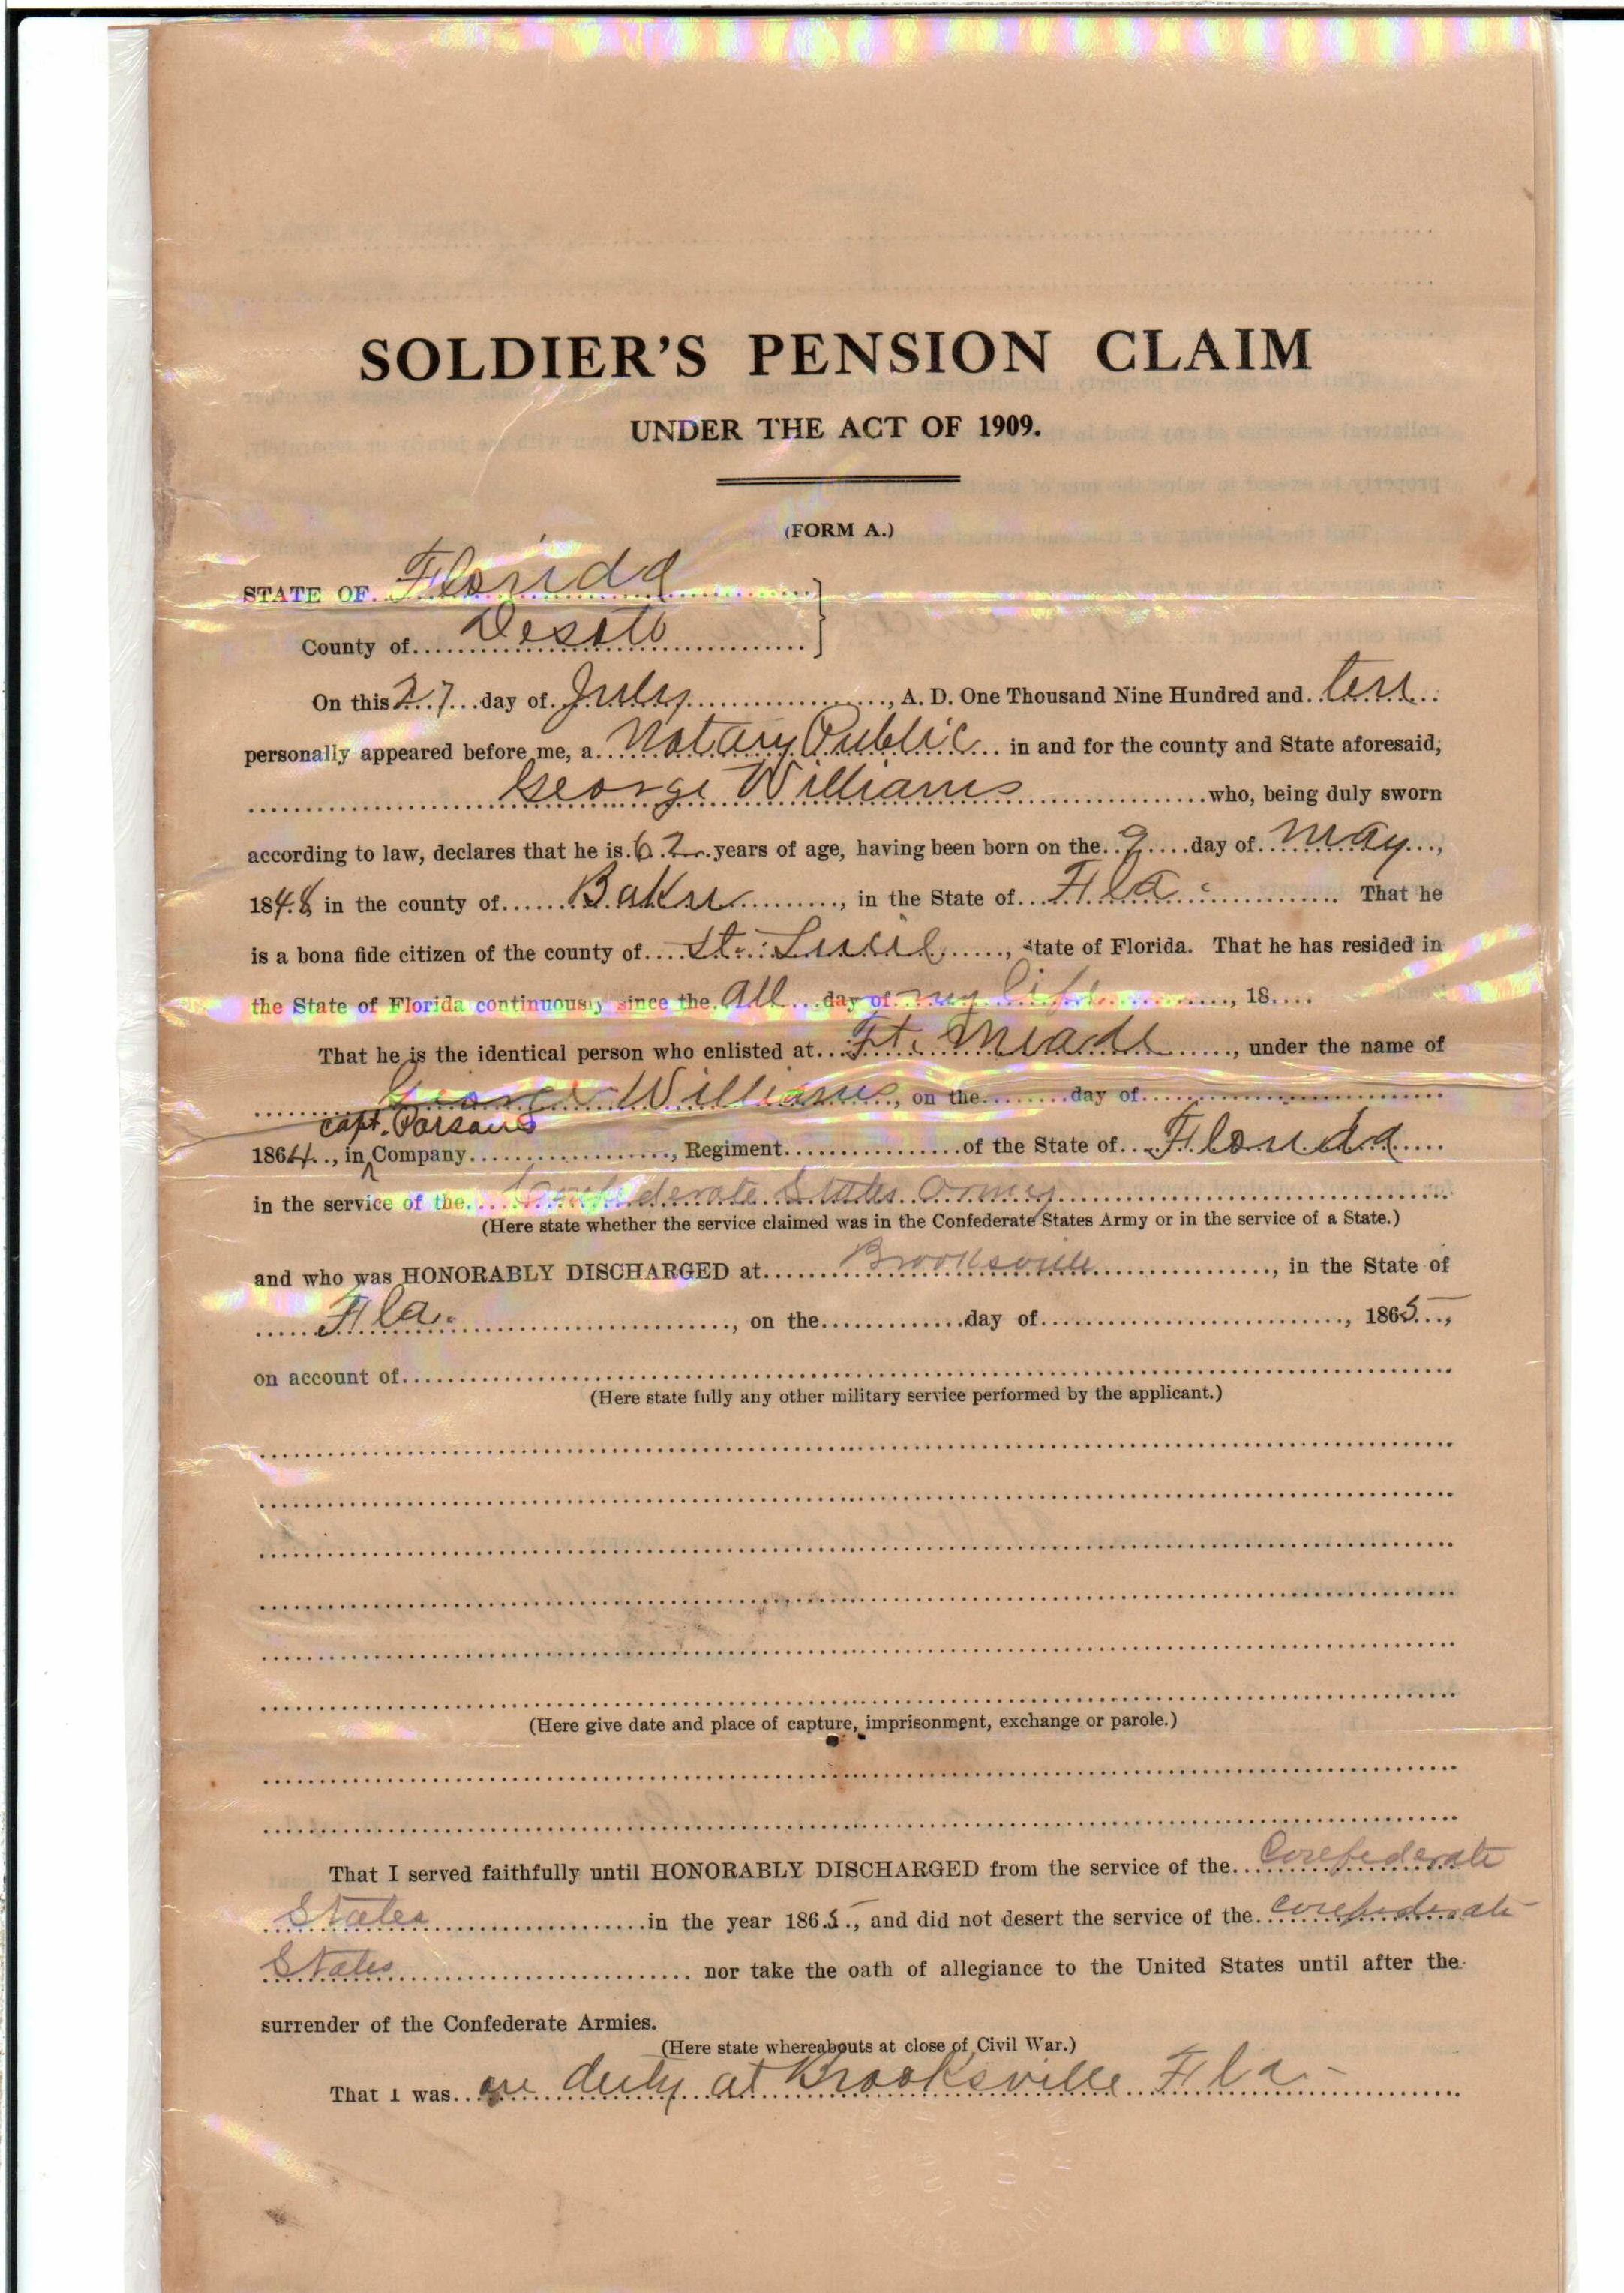 SOLDIER'S PENSION CLAIM
UNDER THE ACT OF 1909.
(FORM A.)
STATE OF Florida
County of Desoto
On this 27 day of July, A. D. One Thousand Nine Hundred and ten
personally appeared before me, a Notary Public in and for the county and State aforesaid,
George Williams who, being duly sworn
according to law, declares that he is 62 years of age, having been born on the 9 day of May,
1848 in the county of Baker, in the State of Fla. That he
is a bona fide citizen of the county of St. Lucie, State of Florida. That he has resided in
the State of Florida continuously since the All day of my life, 18
That he is the identical person who enlisted at Ft. Meade, under the name of
George Williams, on the day of
capt. Parsans
1864, in Company, Regiment of the State of Florida
in the service of the Confederate States Army
(Here state whether the service claimed was in the Confederate States Army or in the service of a State.)
and who was HONORABLY DISCHARGED at Brooksville, in the State of
Fla., on the day of, 1865,
on account of
(Here state fully any other military service performed by the applicant.)
(Here give date and place of capture, imprisonment, exchange or parole.)
That I served faithfully until HONORABLY DISCHARGED from the service of the Confederate
States in the year 1865, and did not desert the service of the Confederate
States nor take the oath of allegiance to the United States until after the
surrender of the Confederate Armies.
(Here state whereabouts at close of Civil War.)
That I was on duty at Brooksville Fla